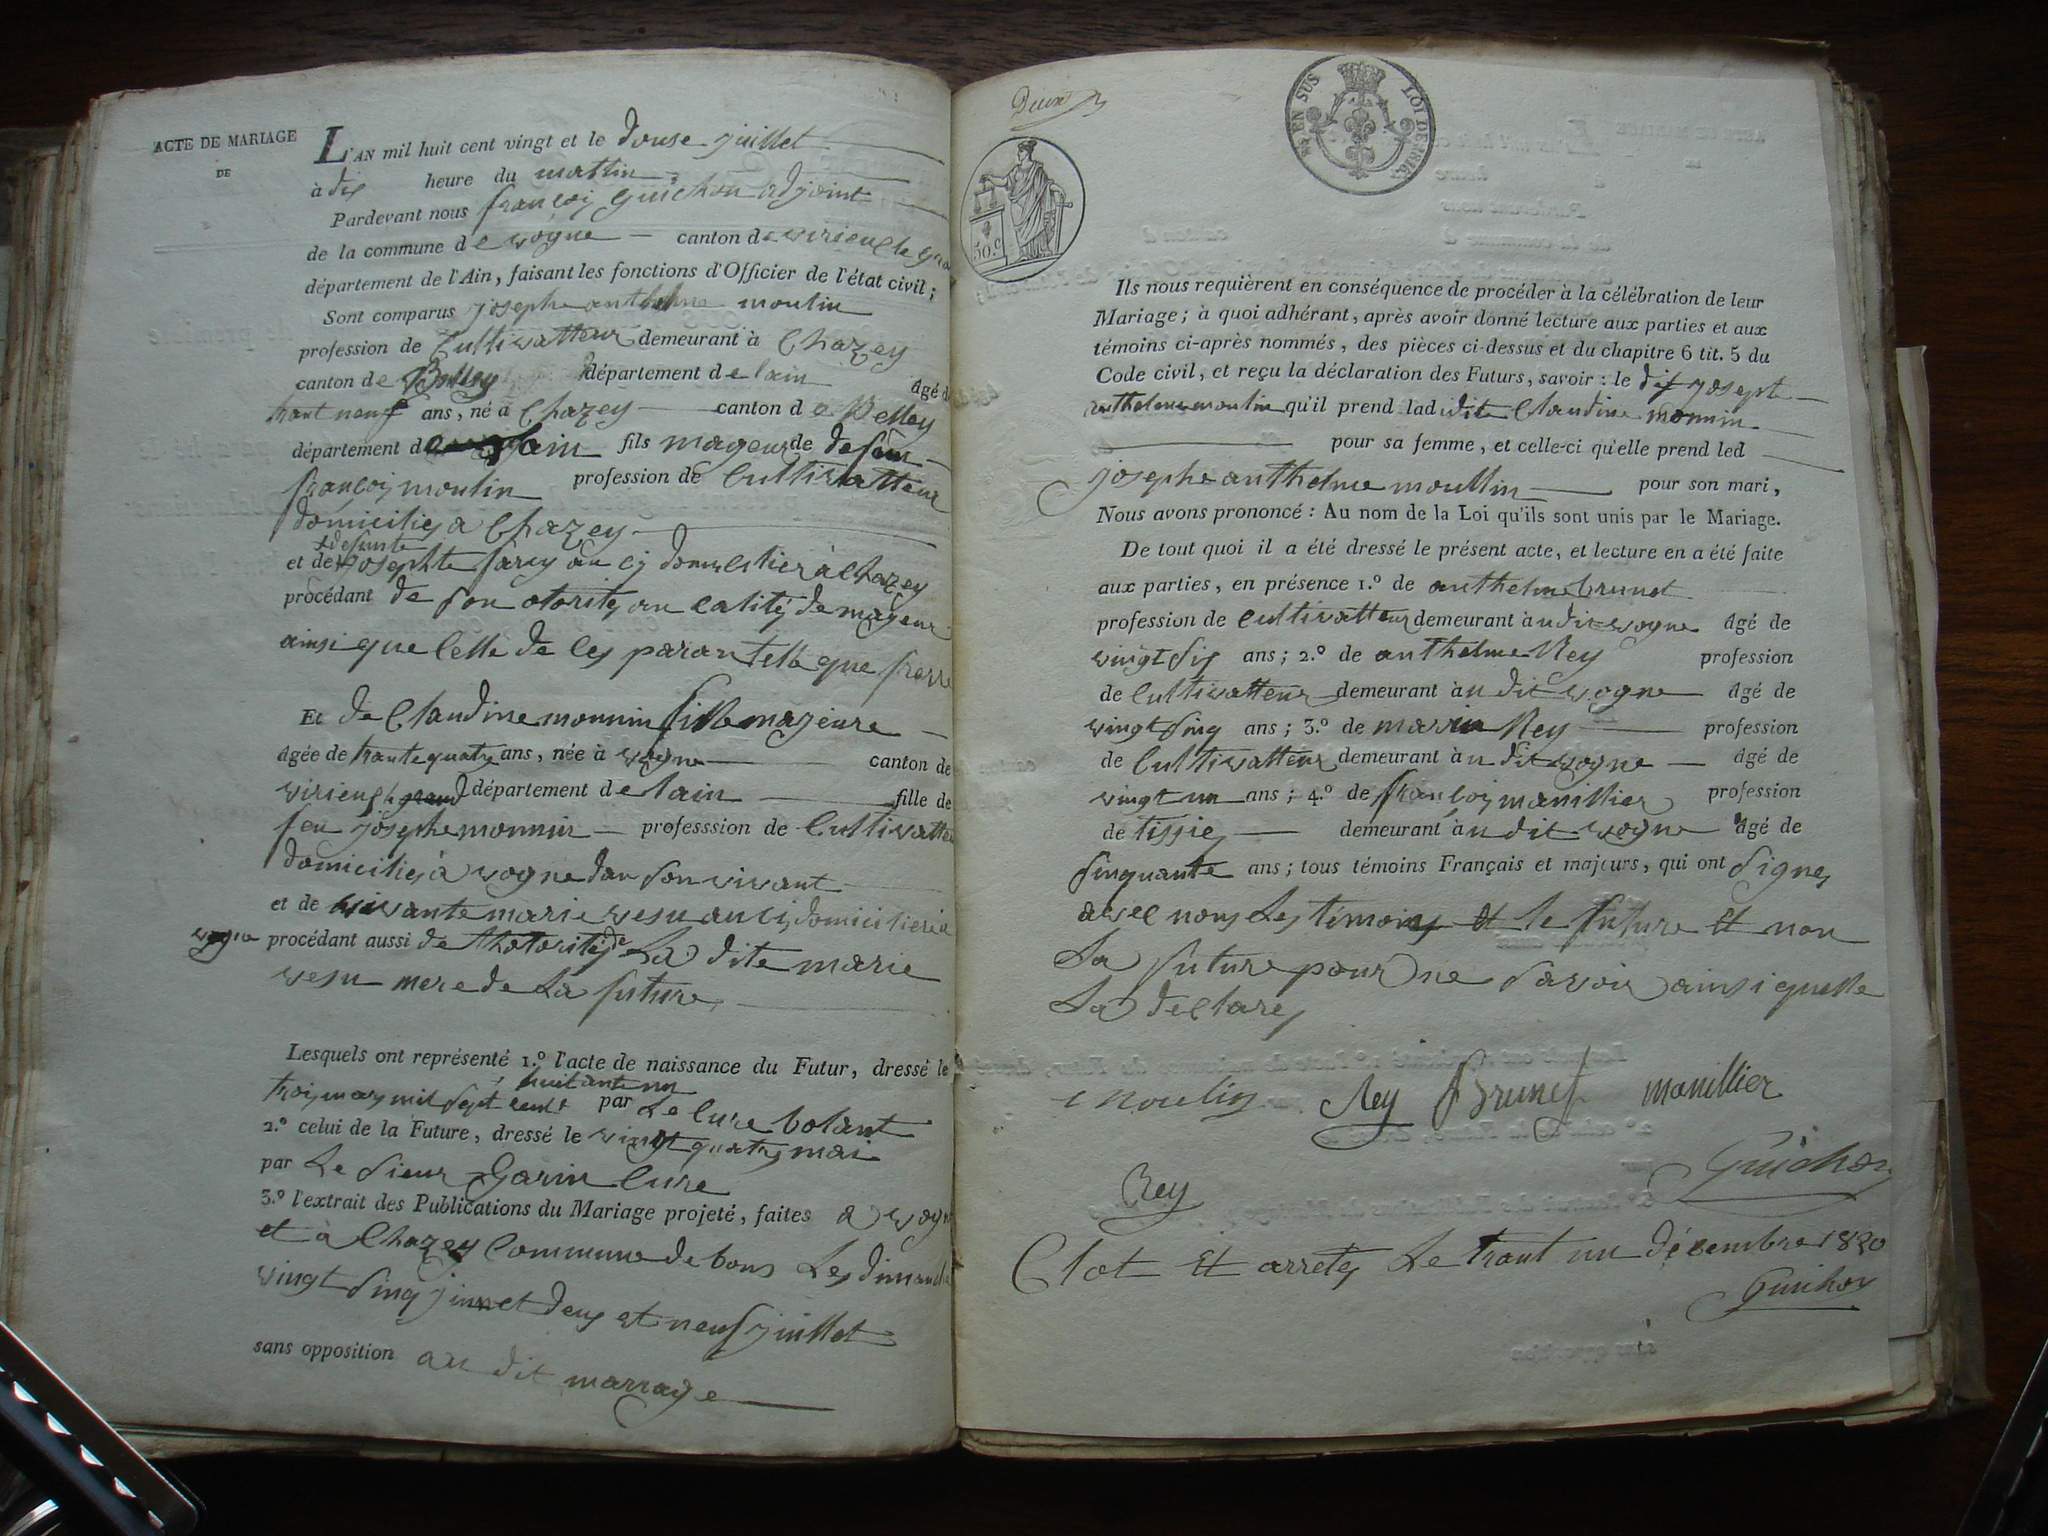 ACTE DE MARIAGE
DE
L'AN mil huit cent vingt et le douse juillet
à dix heure du mattin
Pardevant nous françois guichon adjoint
de la commune de vogne canton de virieu le gra
département de l'Ain, faisant les fonctions d'Officier de l'état civil;
Sont comparus josephe anthelme moulin
profession de Cultivatteur demeurant à Chazey
canton de Belley département de lain Agé de
trant neuf ans, né à Chazey canton de Belley
département de lain fils mageur de defun
françois moulin profession de Cultivatteur
domicilies a Chazey
defunte
et de josephte farcy au cy domestier à Chazey
procédant de son otorites an calités de mageur
ainsi que celle de ces parant telle que frerre
Et de Claudine monnin fille majeure
Agée de trante quatre ans, née à vogne canton de
virieu le grand département de lain fille de
feu josephe monnin professsion de Cultivatteu
domicilies à vogne dan son vivant
et de vivante marie vesu au ci domicilier à
vogne procédant aussi de lhotorités de La dite marie
vesu mere de La future
Lesquels ont représenté 1.º l'acte de naissance du Futur, dressé le
huitante un
trois mars mil sept cent par Le Cure bolant
2.º celui de la Future, dressé le vingt quatre mai
par Le sieur Garin Cure
3.º l'extrait des Publications du Mariage projeté, faites a vogn
et à Chazey Commune de bons Les dimanche
vingt sinq juin et deux et neuf juillet
sans opposition au dit marrage
Deux
EN SUS LOI DE 1816
50.c
Ils nous requièrent en conséquence de procéder à la célébration de leur
Mariage; à quoi adhérant, après avoir donné lecture aux parties et aux
témoins ci-après nommés, des pièces ci-dessus et du chapitre 6 tit. 5 du
Code civil, et reçu la déclaration des Futurs, savoir: le dit josept
anthelme moulin qu'il prend lad dite Claudine monnin
pour sa femme, et celle-ci qu'elle prend led
josephe anthelme moullin pour son mari,
Nous avons prononcé: Au nom de la Loi qu'ils sont unis par le Mariage.
De tout quoi il a été dressé le présent acte, et lecture en a été faite
aux parties, en présence 1.º de anthelme brunet
profession de Cultivatteur demeurant à u dit vogne Agé de
vingt six ans; 2.º de anthelme Rey profession
de Cultivatteur demeurant à u dit vogne Agé de
vingt sinq ans; 3.º de marin Rey profession
de Cultivatteur demeurant à u dit vogne Agé de
vingt un ans; 4.º de françois manillier profession
de tissie demeurant à u dit vogne Agé de
sinquante ans; tous témoins Français et majeurs, qui ont signes
avec nous Les témoins et le future et non
La future pour ne savoir ainsi quelle
La declares
moulin Rey Brunet manillier
Guichon
Rey
Clot et arretes Le trant un décembre 1820
Guichon